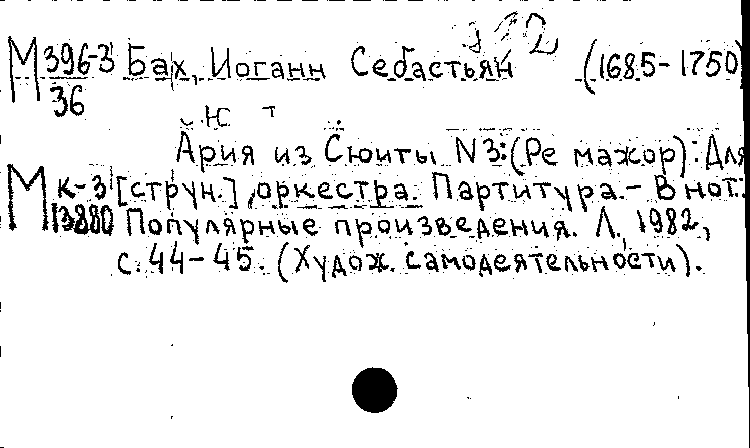 М 396-3 Бах, Иоганн Себастьян (1685-1750)
36
Ария из Сюиты N3: (Ре мажор): Для
М к-3 [струн.] оркестра. Партитура. - В нот.:
13880 Популярные произведения. Л., 1982,
с. 44-45. (Худож. самодеятельности).